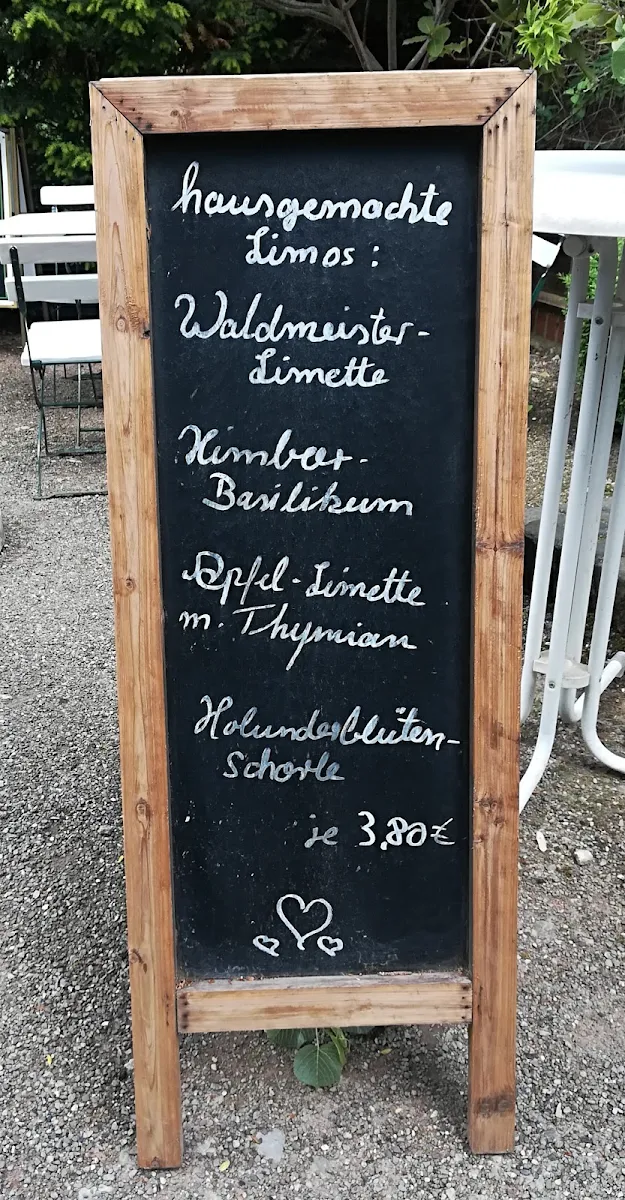 hausgemachte
Limos:
Waldmeister-
Limette
Himbeer-
Basilikum
Apfel-Limette
m. Thymian
Holunderblüten-
Schorle
je 3,80€